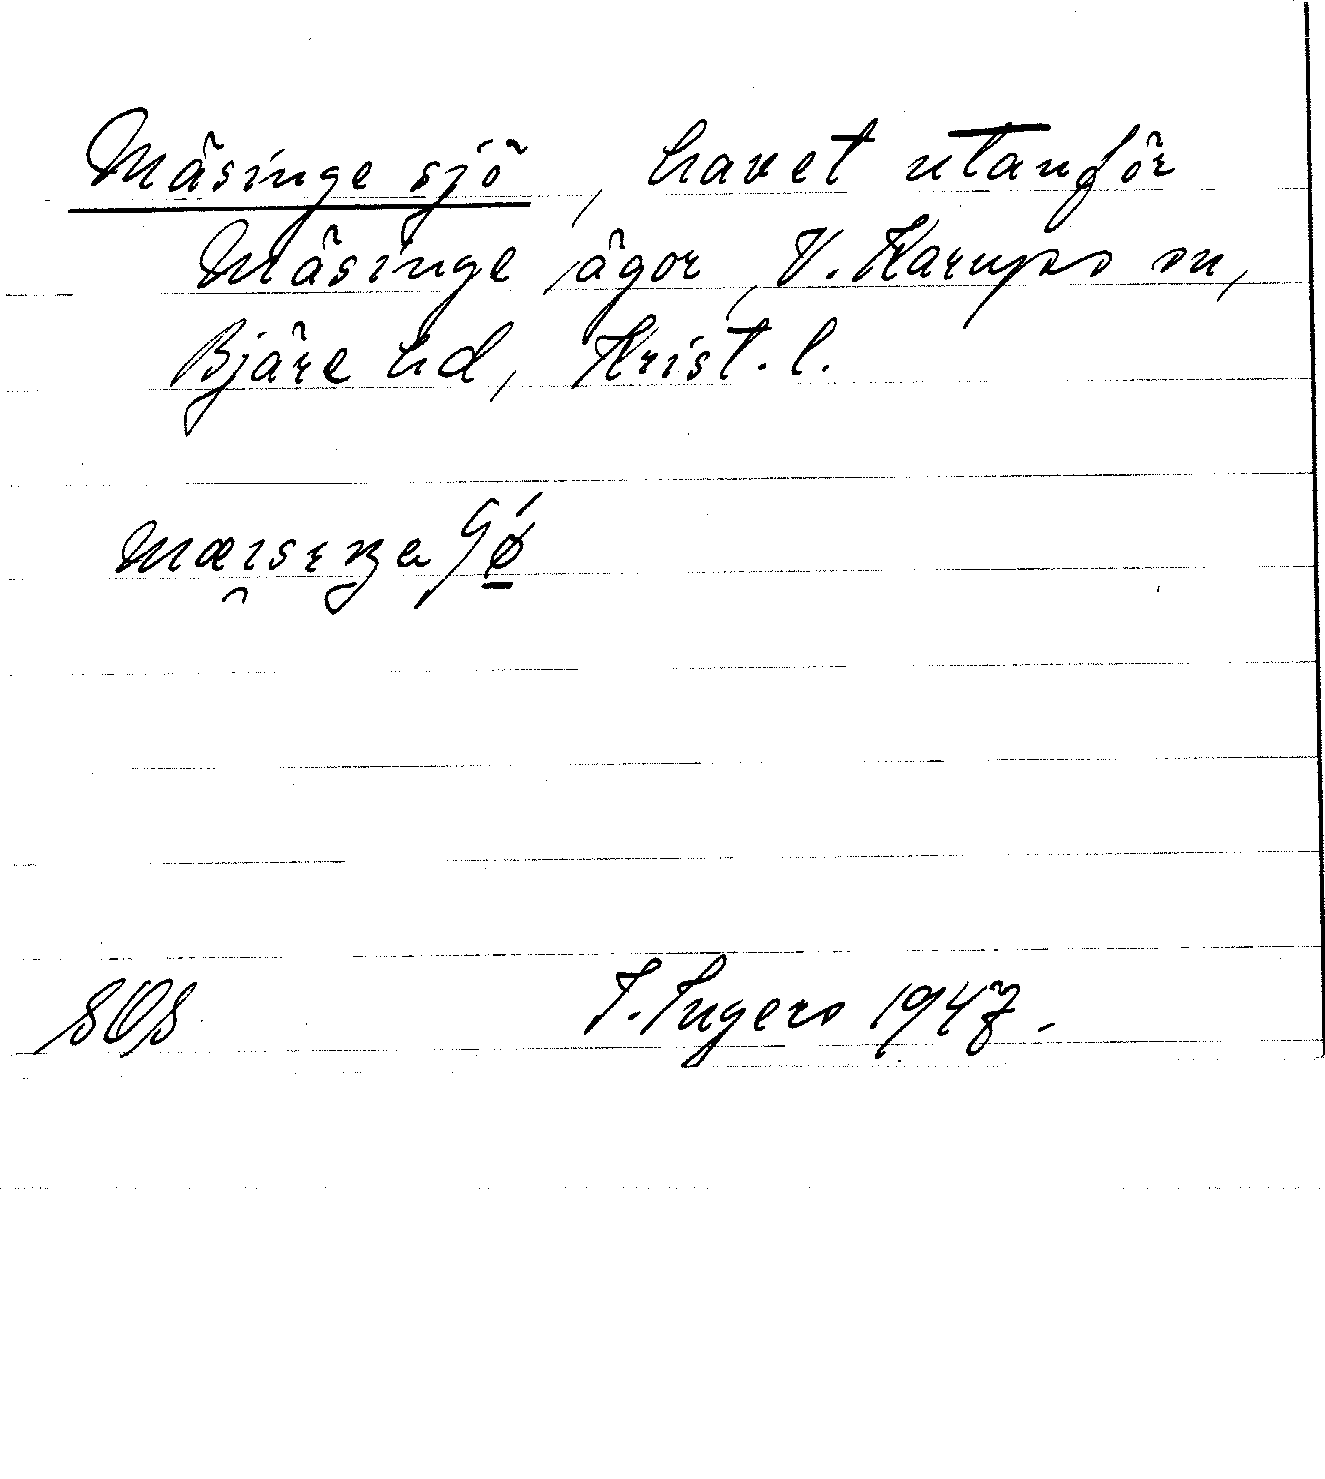 Mäsinge sjö, havet utanför
Mäsinge ägor, V. Karups sn,
Bjäre hd, Krist. l.
SOS I. Ingers 1947.